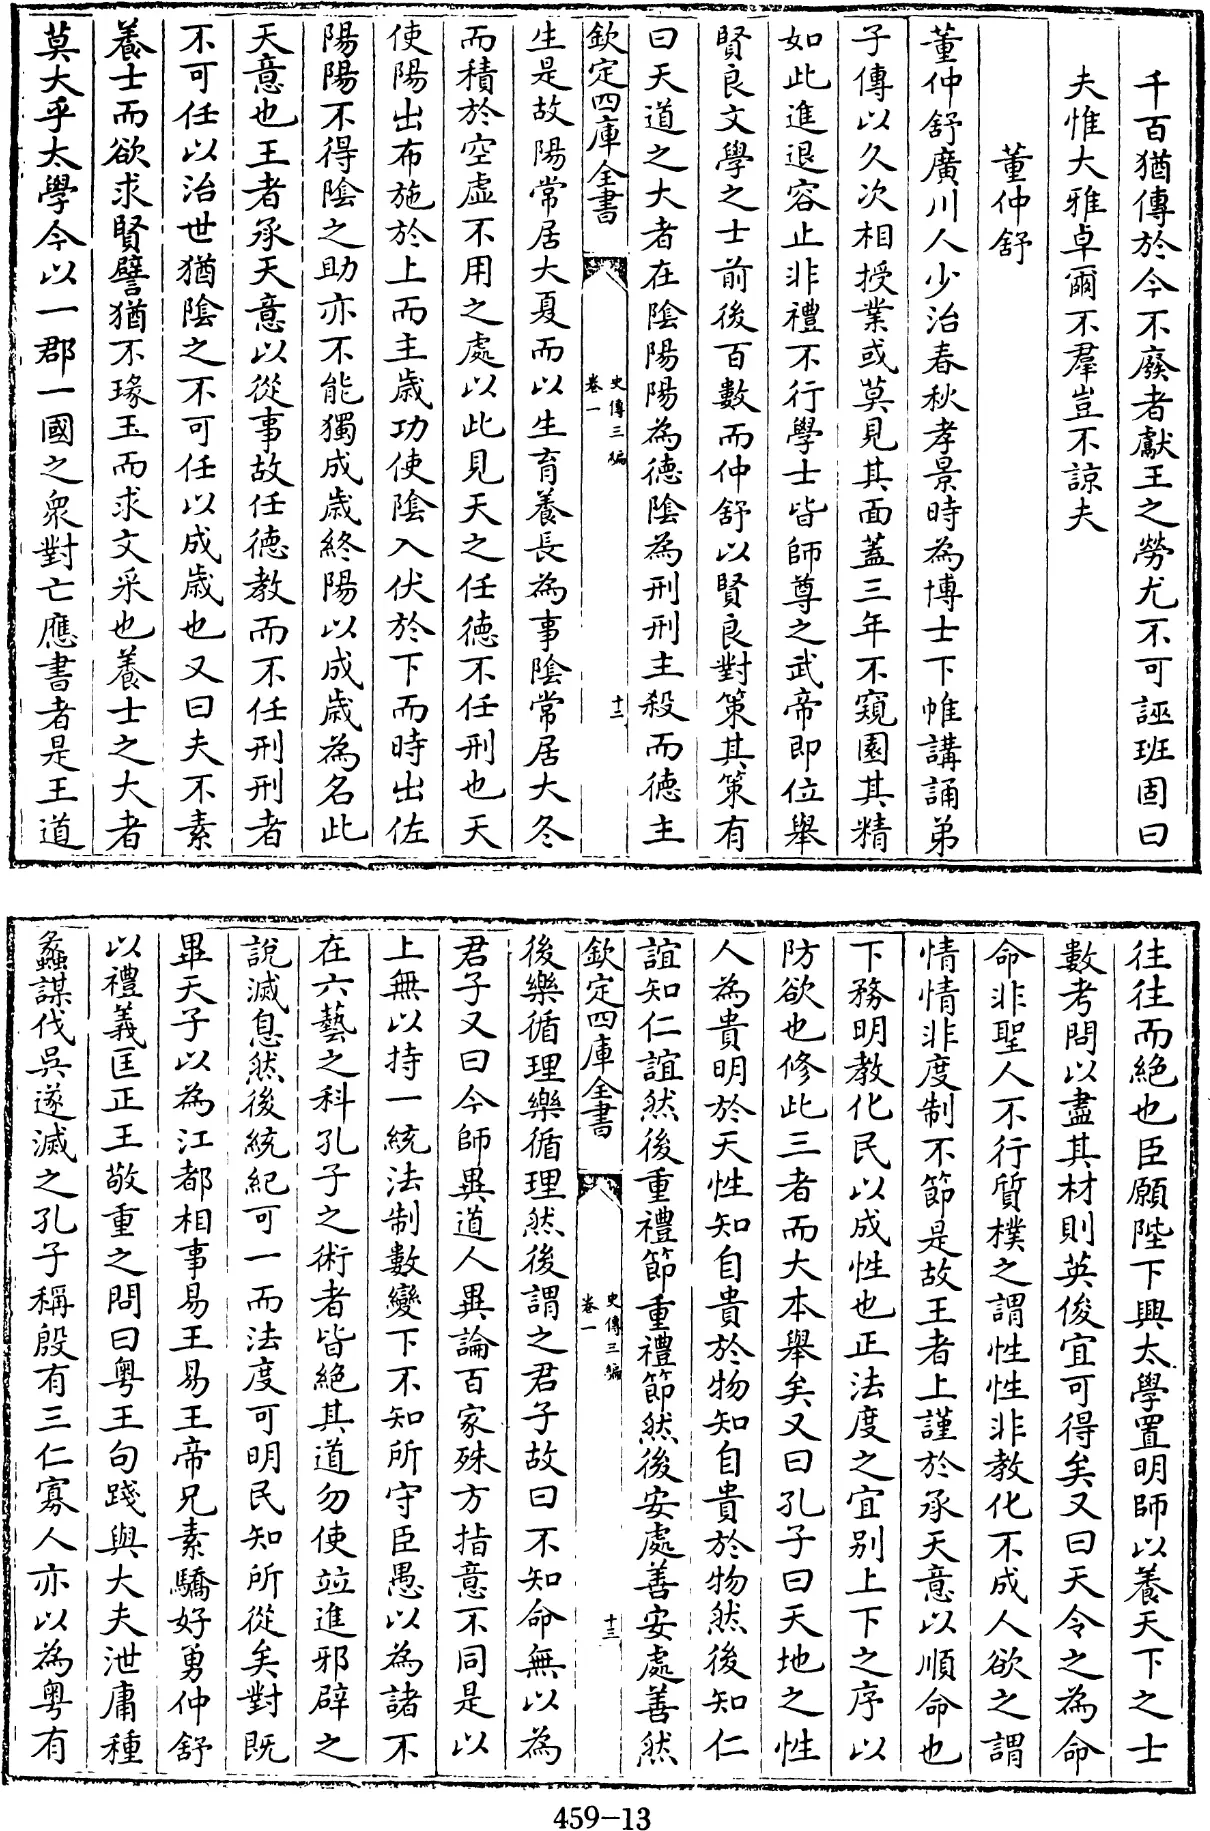 千百猶傳於今不廢者獻王之勞尤不可誣班固曰
夫惟大雅卓爾不羣豈不諒夫
董仲舒
董仲舒廣川人少治春秋孝景時為博士下帷講誦弟
子傳以久次相授業或莫見其面蓋三年不窺園其精
如此進退容止非禮不行學士皆師尊之武帝即位舉
賢良文學之士前後百數而仲舒以賢良對策其策有
曰天道之大者在陰陽陽為德陰為刑刑主殺而德主
欽定四庫全書
史傳三編
卷一
十二
生是故陽常居大夏而以生育養長為事陰常居大冬
而積於空虛不用之處以此見天之任德不任刑也天
使陽出布施於上而主歲功使陰入伏於下而時出佐
陽陽不得陰之助亦不能獨成歲終陽以成歲為名此
天意也王者承天意以從事故任德教而不任刑刑者
不可任以治世猶陰之不可任以成歲也又曰夫不素
養士而欲求賢譬猶不瑑玉而求文采也養士之大者
莫大乎太學今以一郡一國之衆對亡應書者是王道
往往而絕也臣願陛下興太學置明師以養天下之士
數考問以盡其材則英俊宜可得矣又曰天令之為命
命非聖人不行質樸之謂性性非教化不成人欲之謂
情情非度制不節是故王者上謹於承天意以順命也
下務明教化民以成性也正法度之宜别上下之序以
防欲也修此三者而大本舉矣又曰孔子曰天地之性
人為貴明於天性知自貴於物知自貴於物然後知仁
誼知仁誼然後重禮節重禮節然後安處善安處善然
欽定四庫全書
史傳三編
卷一
十三
後樂循理樂循理然後謂之君子故曰不知命無以為
君子又曰今師異道人異論百家殊方指意不同是以
上無以持一統法制數變下不知所守臣愚以為諸不
在六藝之科孔子之術者皆絕其道勿使並進邪辟之
說滅息然後統紀可一而法度可明民知所從矣對既
畢天子以為江都相事易王易王帝兄素驕好勇仲舒
以禮義匡正王敬重之問曰粵王句踐與大夫泄庸種
蠡謀伐吳遂滅之孔子稱殷有三仁寡人亦以為粵有
459-13